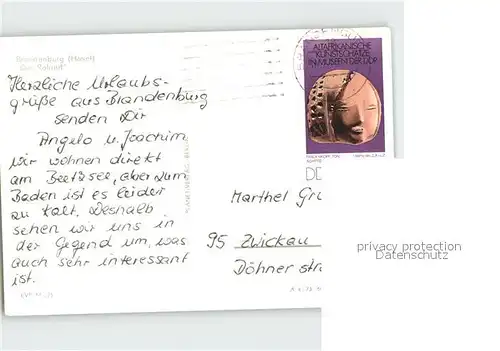 Brandenburg (Havel)
Herzliche Urlaubs-
grüße aus Brandenburg
senden Dir
Angelo u. Joachim
wir wohnen direkt
am Beetzsee, aber zum
Baden ist es leider
zu kalt. Deshalb
sehen wir uns in
der Gegend um, was
auch sehr interessant
ist.
ALTAFRIKANISCHE
KUNSTSCHÄTZE
IN MUSEEN DER DDR
Marthel Gru
95 Zwickau
Döhner str
privacy protection
Datenschutz